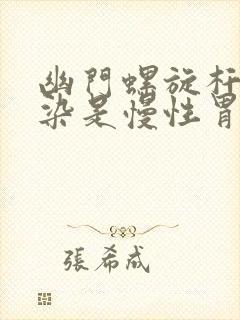 幽門螺旋杆
染是慢性胃
張希成